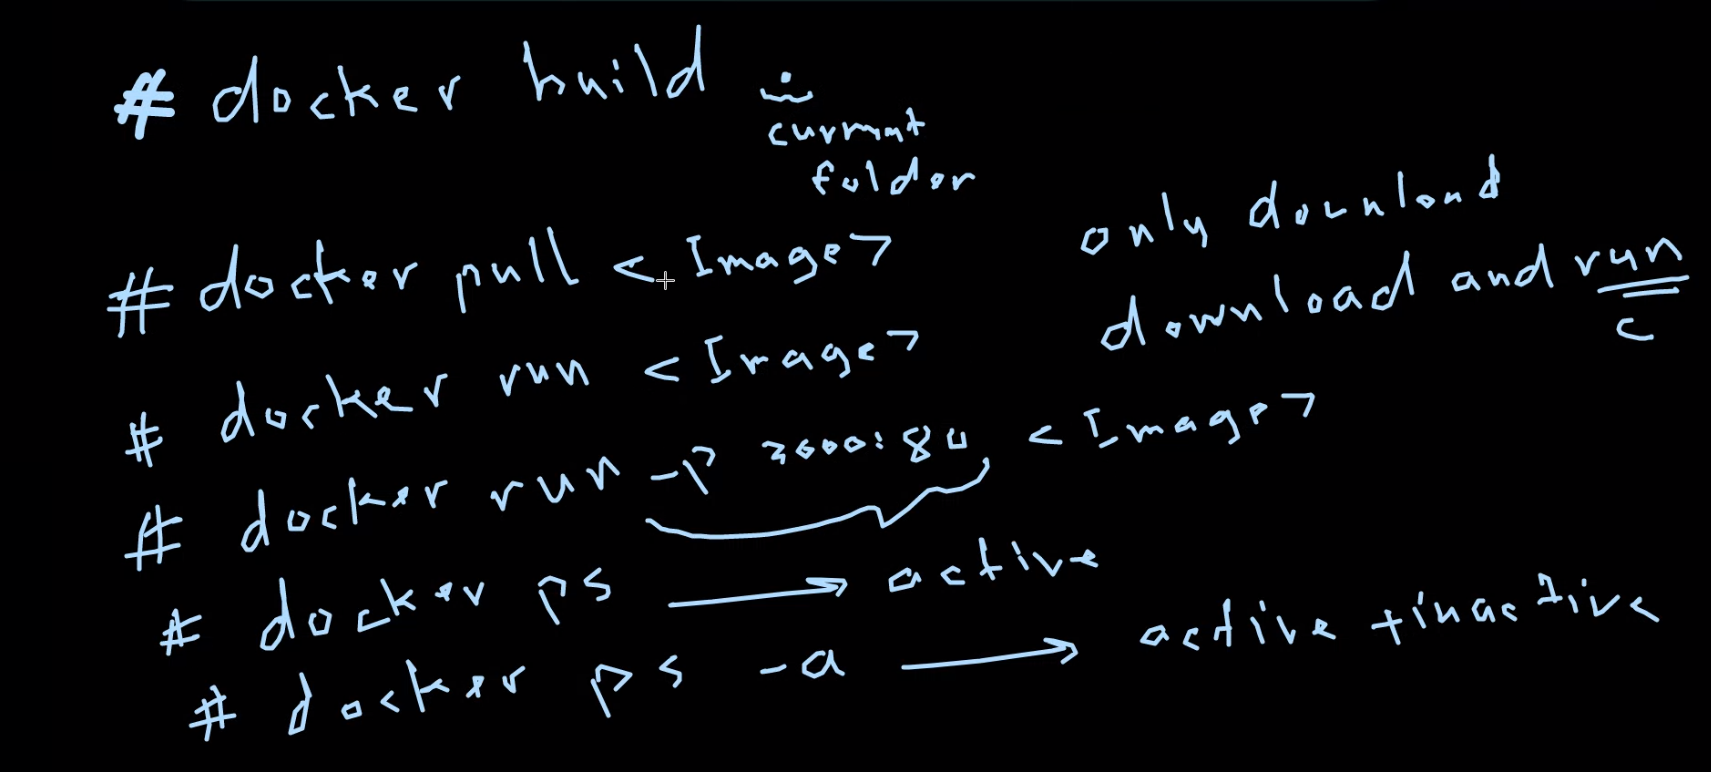 # docker build .
current
folder
# docker pull <Image> only download
# docker run <Image> download and run
c
# docker run -p 3000:80 <Image>
# docker ps → active
# docker ps -a → active +inactive